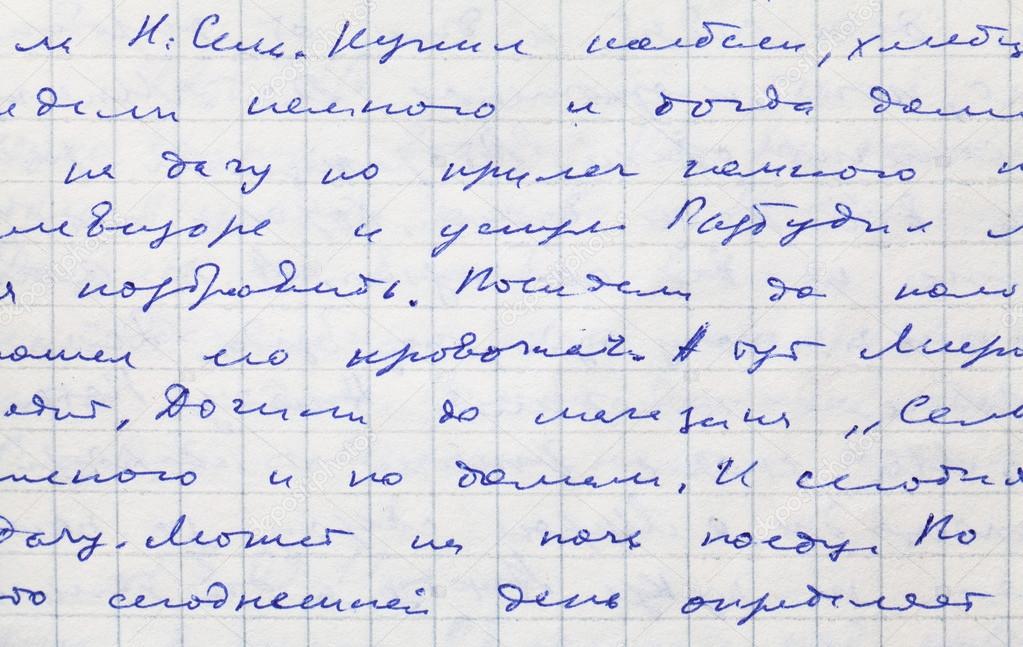 ла Н. Села. Купил колбасы, хлебц
идели немного и тогда дом
на дачу но прилег немного и
левизоре и уснул. Разбудил м
я поздравить. Посидели до поло
пошел его провожать. А тут Миро
одит, Дошли до магазина „Сем
много и по домам. И сегодня
дачу. Может на ночь поеду. Но
то сегоднешней день определяет